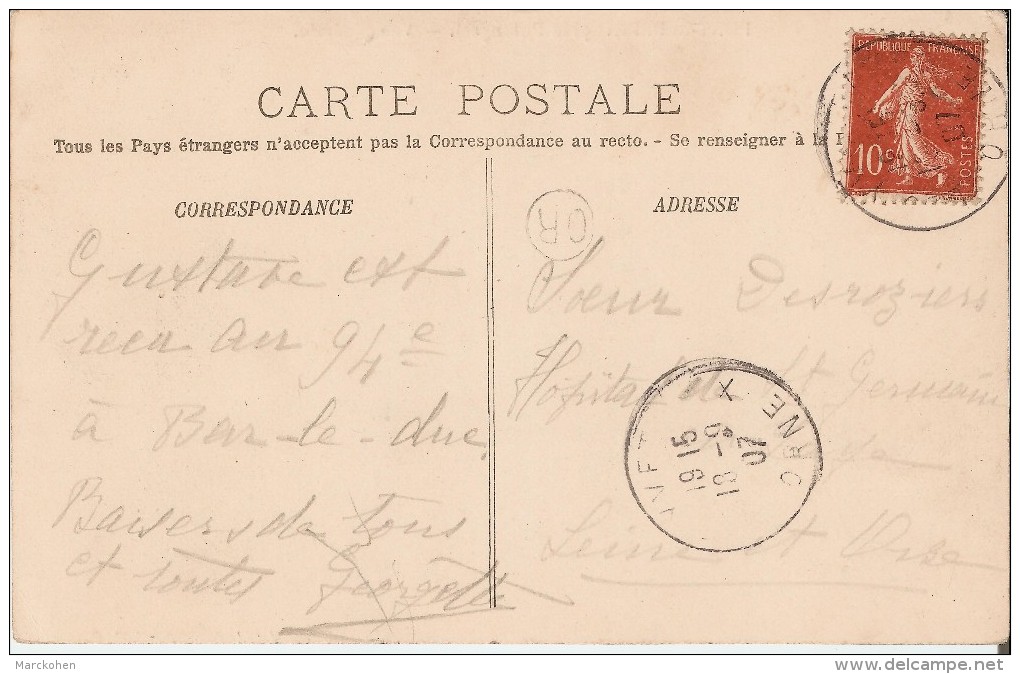 CARTE POSTALE
Tous les Pays étrangers n'acceptent pas la Correspondance au recto. - Se renseigner à la
CORRESPONDANCE
ADRESSE
RÉPUBLIQUE FRANÇAISE
10c
POSTES
OR
Gustave est
recu au 94e
à Bar-le-duc
Baisers de tous
et toutes Georgette
Soeur Desroziers
Hôpital de St Germain
Seine et Oise
ORNE X
19 15
18 -9
07
Marckohen
delcampe.net